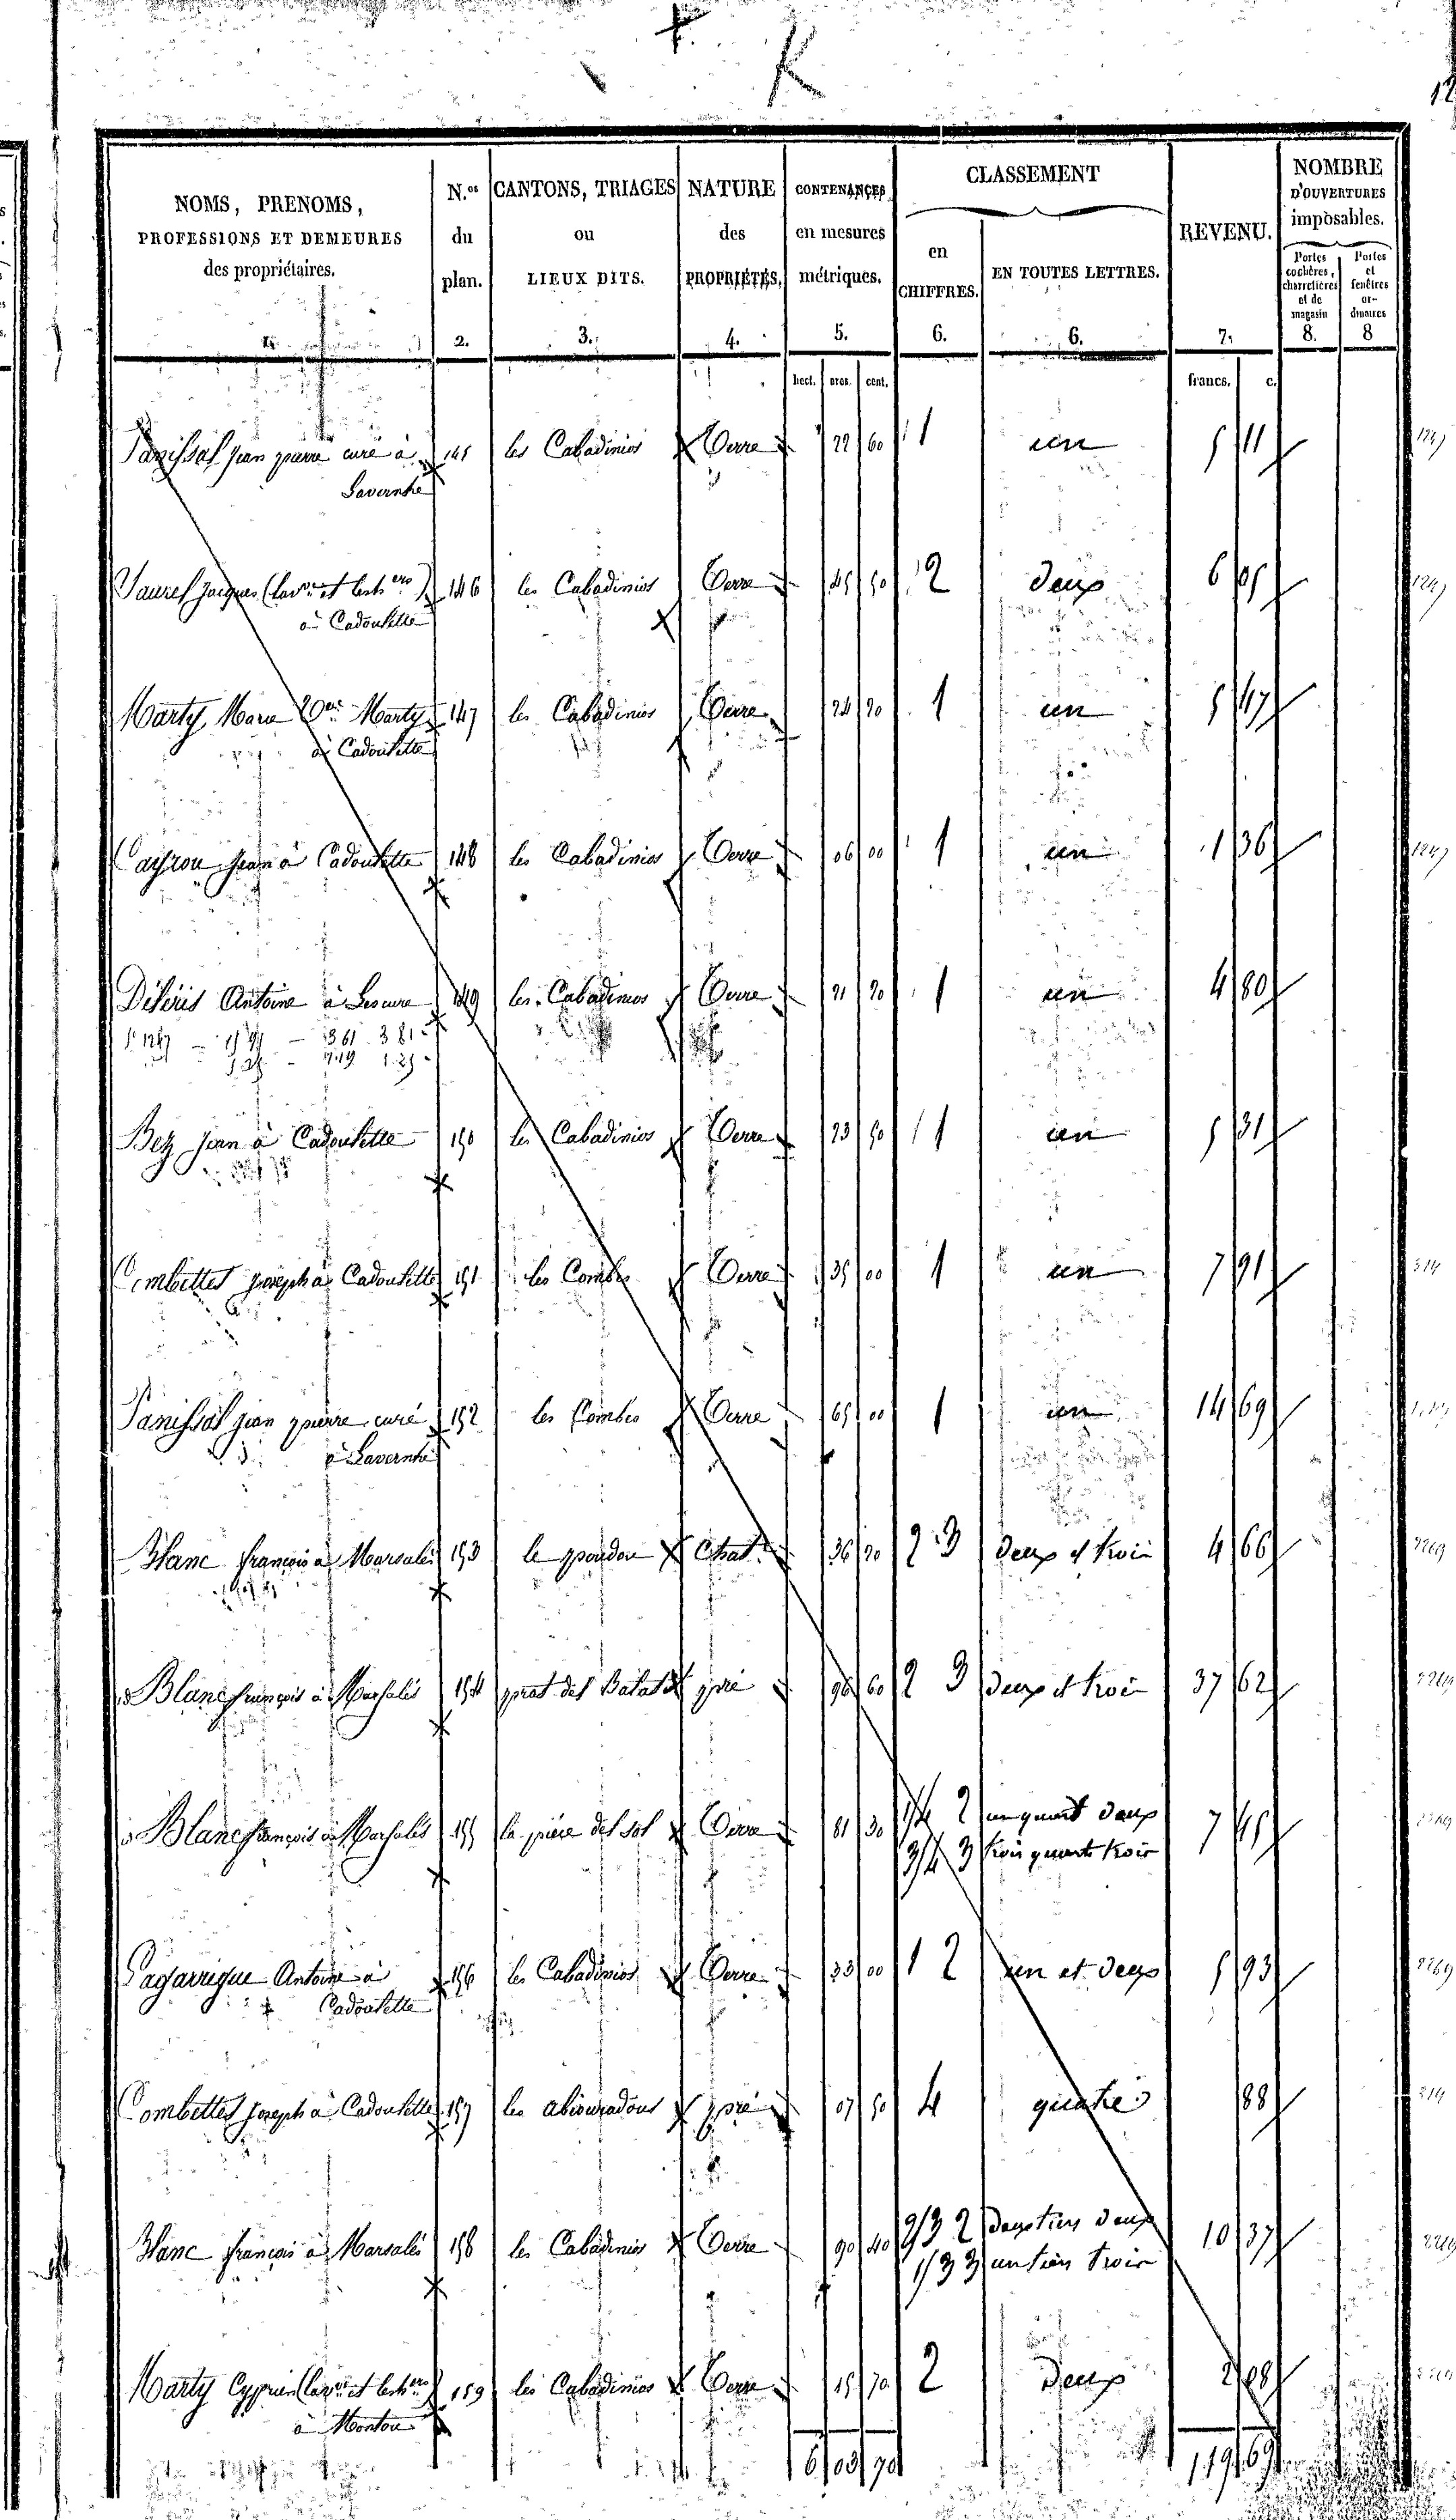 K
12
NOMS, PRENOMS,
PROFESSIONS ET DEMEURES
des propriétaires.
1.
N.os
du
plan.
2.
CANTONS, TRIAGES
ou
LIEUX DITS.
3.
NATURE
des
PROPRIÉTÉS.
4.
CONTENANCES
en mesures
métriques.
5.
CLASSEMENT
en
CHIFFRES.
6.
EN TOUTES LETTRES.
6.
REVENU.
7.
NOMBRE
D'OUVERTURES
imposables.
Portes
cochères,
charretières
et de
magasin
8.
Portes
et
fenêtres
or-
dinaires
8
hect. ares. cent.
francs. c.
Panissal jean pierre curé à 145 les Cabadinios Terre 22 60 1 un 5 11
Lavernhe
Jacques 146 les Cabadinios Terre 45 50 2 deux 6
à Cadoulette
Marty Marie Marty 147 les Cabadinios Terre 24 20 1 un 5 47
à Cadoulette
Cayrou Jean à Cadoulette 148 les Cabadinios Terre 06 00 1 un 1 36
Antoine à Lescure 149 les Cabadinios Terre 21 20 1 un 4 80
Bez jean à Cadoulette 150 les Cabadinios Terre 23 50 1 un 5 31
Combettes joseph à Cadoulette 151 les Combes Terre 35 00 1 un 7 91
Panissal jean pierre curé 152 les Combes Terre 65 00 1 un 14 69
à Lavernhe
Blanc françois à Marsalés 153 le Chat. 36 20 2 3 deux et trois 4 66
Blanc françois à Marsalés 154 prat del pré 96 60 2 3 deux et trois 37 62
Blanc françois à Marsalés 155 la pièce del sol Terre 81 30 1/4 2 un quart deux 7 45
3/4 3 trois quarts trois
Antoine à 156 les Cabadinios Terre 33 00 1 2 un et deux 5 93
Cadoulette
Combettes joseph à Cadoulette 157 les abiouradous pré 07 50 4 quatre 88
Blanc françois à Marsalés 158 les Cabadinios Terre 90 40 2/3 2 deux tiers deux 10 37
1/3 3 un tiers trois
Marty Cyprien 159 les Cabadinios Terre 15 70 2 deux 2
à
6 03 70
119 69